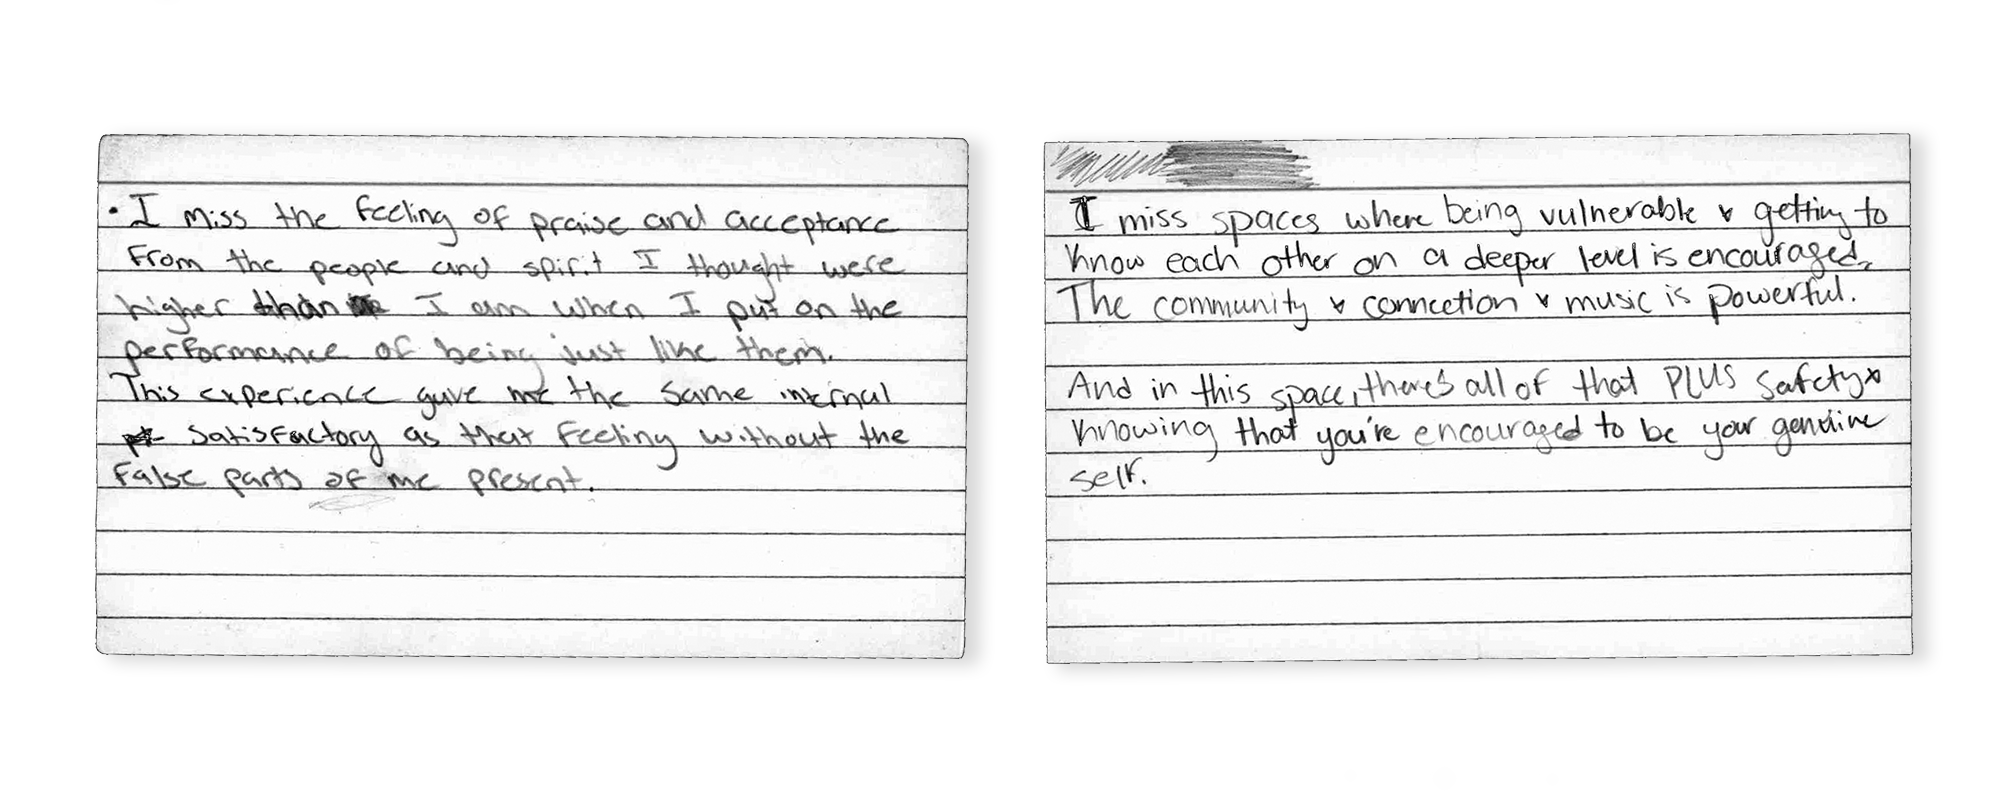 • I miss the feeling of praise and acceptance
from the people and spirit I thought were
higher than I am when I put on the
performance of being just like them.
This experience gave me the same internal
satisfactory as that feeling without the
false parts of me present.
I miss spaces where being vulnerable & getting to
know each other on a deeper level is encouraged.
The community & conncetion & music is powerful.
And in this space, there's all of that PLUS safety &
knowing that you're encouraged to be your genuine
self.